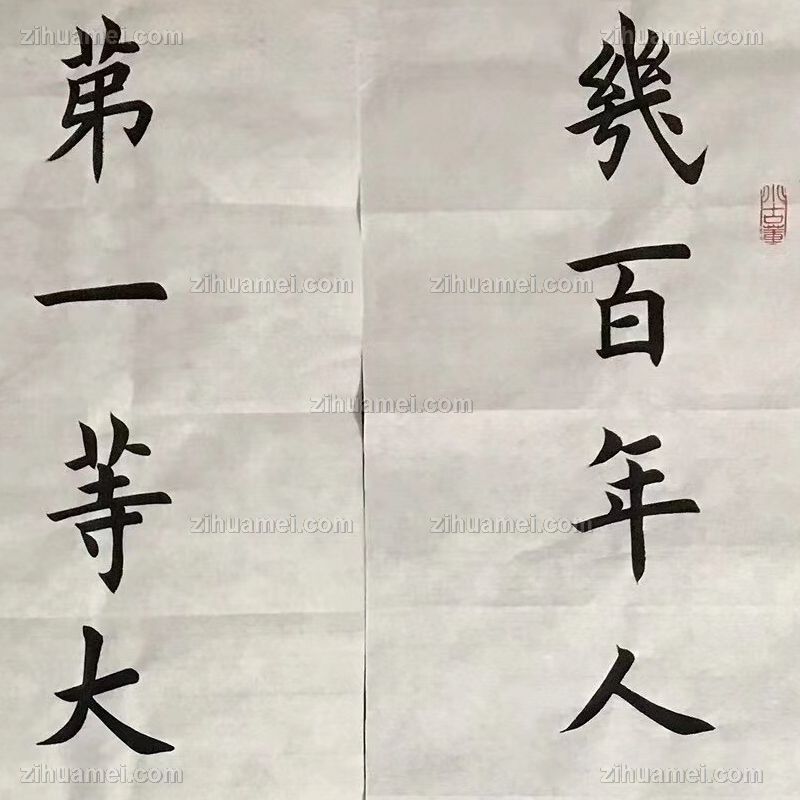 幾百年人
第一等大
小古董
zihuamei.com zihuamei.com zihuamei.com
zihuamei.com zihuamei.com
zihuamei.com
zihuamei.com zihuamei.com
zihuamei.com zihuamei.com